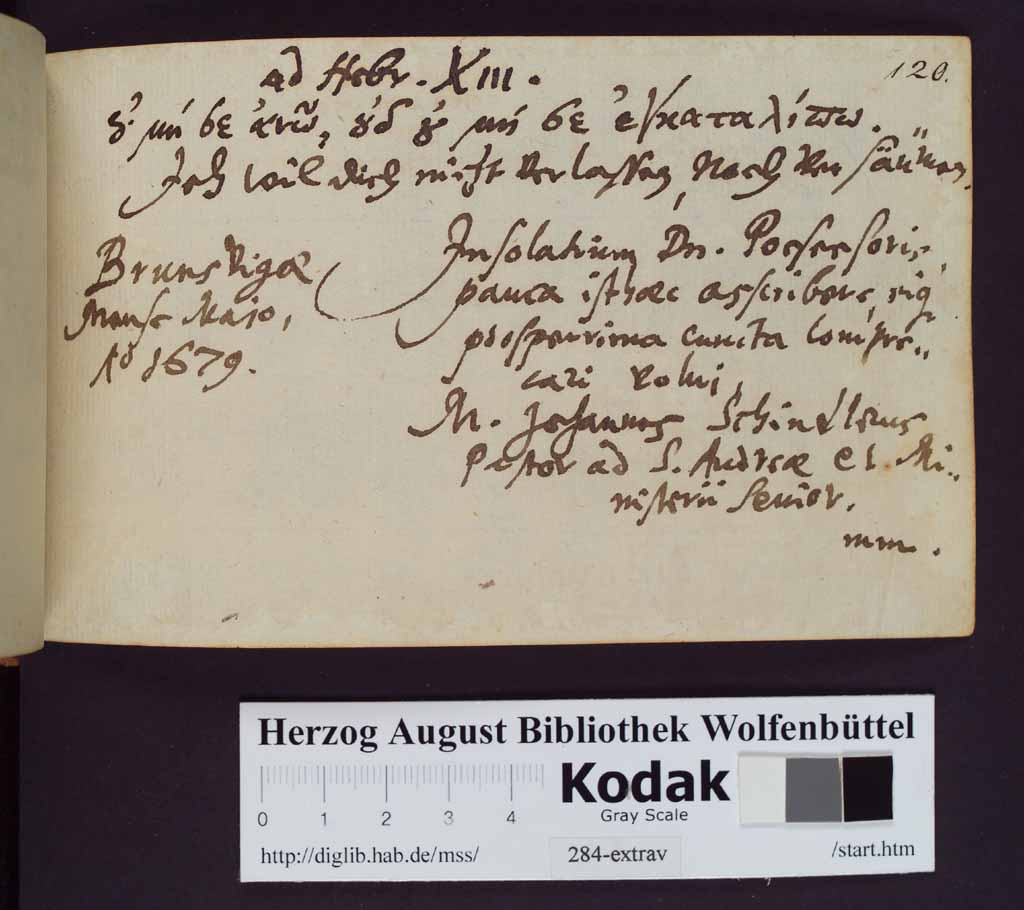 120.
ad Hebr. XIII.
οὐ μή σε ἀνῶ, οὐδ οὐ μή σε ἐγκαταλίπω.
Ich wil dich nicht verlassen, noch versäumen.
Brunsvigae
Mense Majo,
Ao 1679.
In solatium Dn. Possessoris,
pauca isthaec asscribere, eiq
prosperrima cuncta compre=
cari volui,
M. Johannes Schindlerus
Pastor ad S. Andreae et Mi=
nisterii Senior.
mm.
Herzog August Bibliothek Wolfenbüttel
Kodak
Gray Scale
0 1 2 3 4
http://diglib.hab.de/mss/ 284-extrav /start.htm